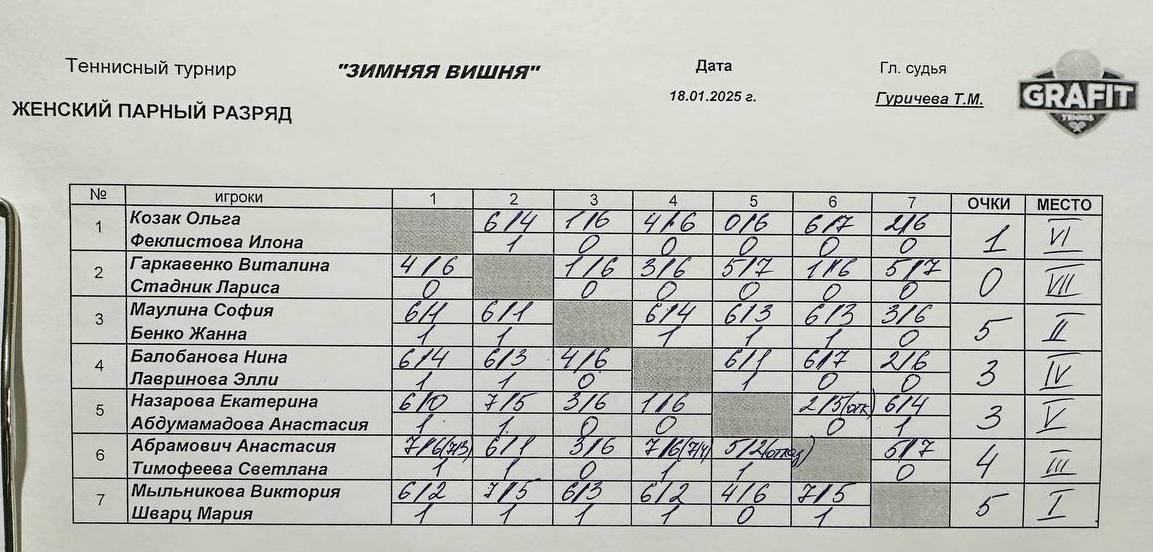 Теннисный турнир "ЗИМНЯЯ ВИШНЯ" Дата Гл. судья
18.01.2025 г. Гуричева Т.М.
GRAFIT
TENNIS
ЖЕНСКИЙ ПАРНЫЙ РАЗРЯД
№ игроки 1 2 3 4 5 6 7 ОЧКИ МЕСТО
1 Козак Ольга 6/4 1/6 4/6 0/6 6/7 2/6 1 VI
Феклистова Илона 1 0 0 0 0 0
2 Гаркавенко Виталина 4/6 1/6 3/6 5/7 1/6 5/7 0 VII
Стадник Лариса 0 0 0 0 0 0
3 Маулина София 6/1 6/1 6/4 6/3 6/3 3/6 5 II
Бенко Жанна 1 1 1 1 1 0
4 Балобанова Нина 6/4 6/3 4/6 6/1 6/7 2/6 3 IV
Лавринова Элли 1 1 0 1 0 0
5 Назарова Екатерина 6/0 7/5 3/6 1/6 2/5(отк) 6/4 3 V
Абдумамадова Анастасия 1 1 0 0 0 1
6 Абрамович Анастасия 7/6(7/3) 6/1 3/6 7/6(7/4) 5/2(отказ) 5/7 4 III
Тимофеева Светлана 1 1 0 1 1 0
7 Мыльникова Виктория 6/2 7/5 6/3 6/2 4/6 7/5 5 I
Шварц Мария 1 1 1 1 0 1